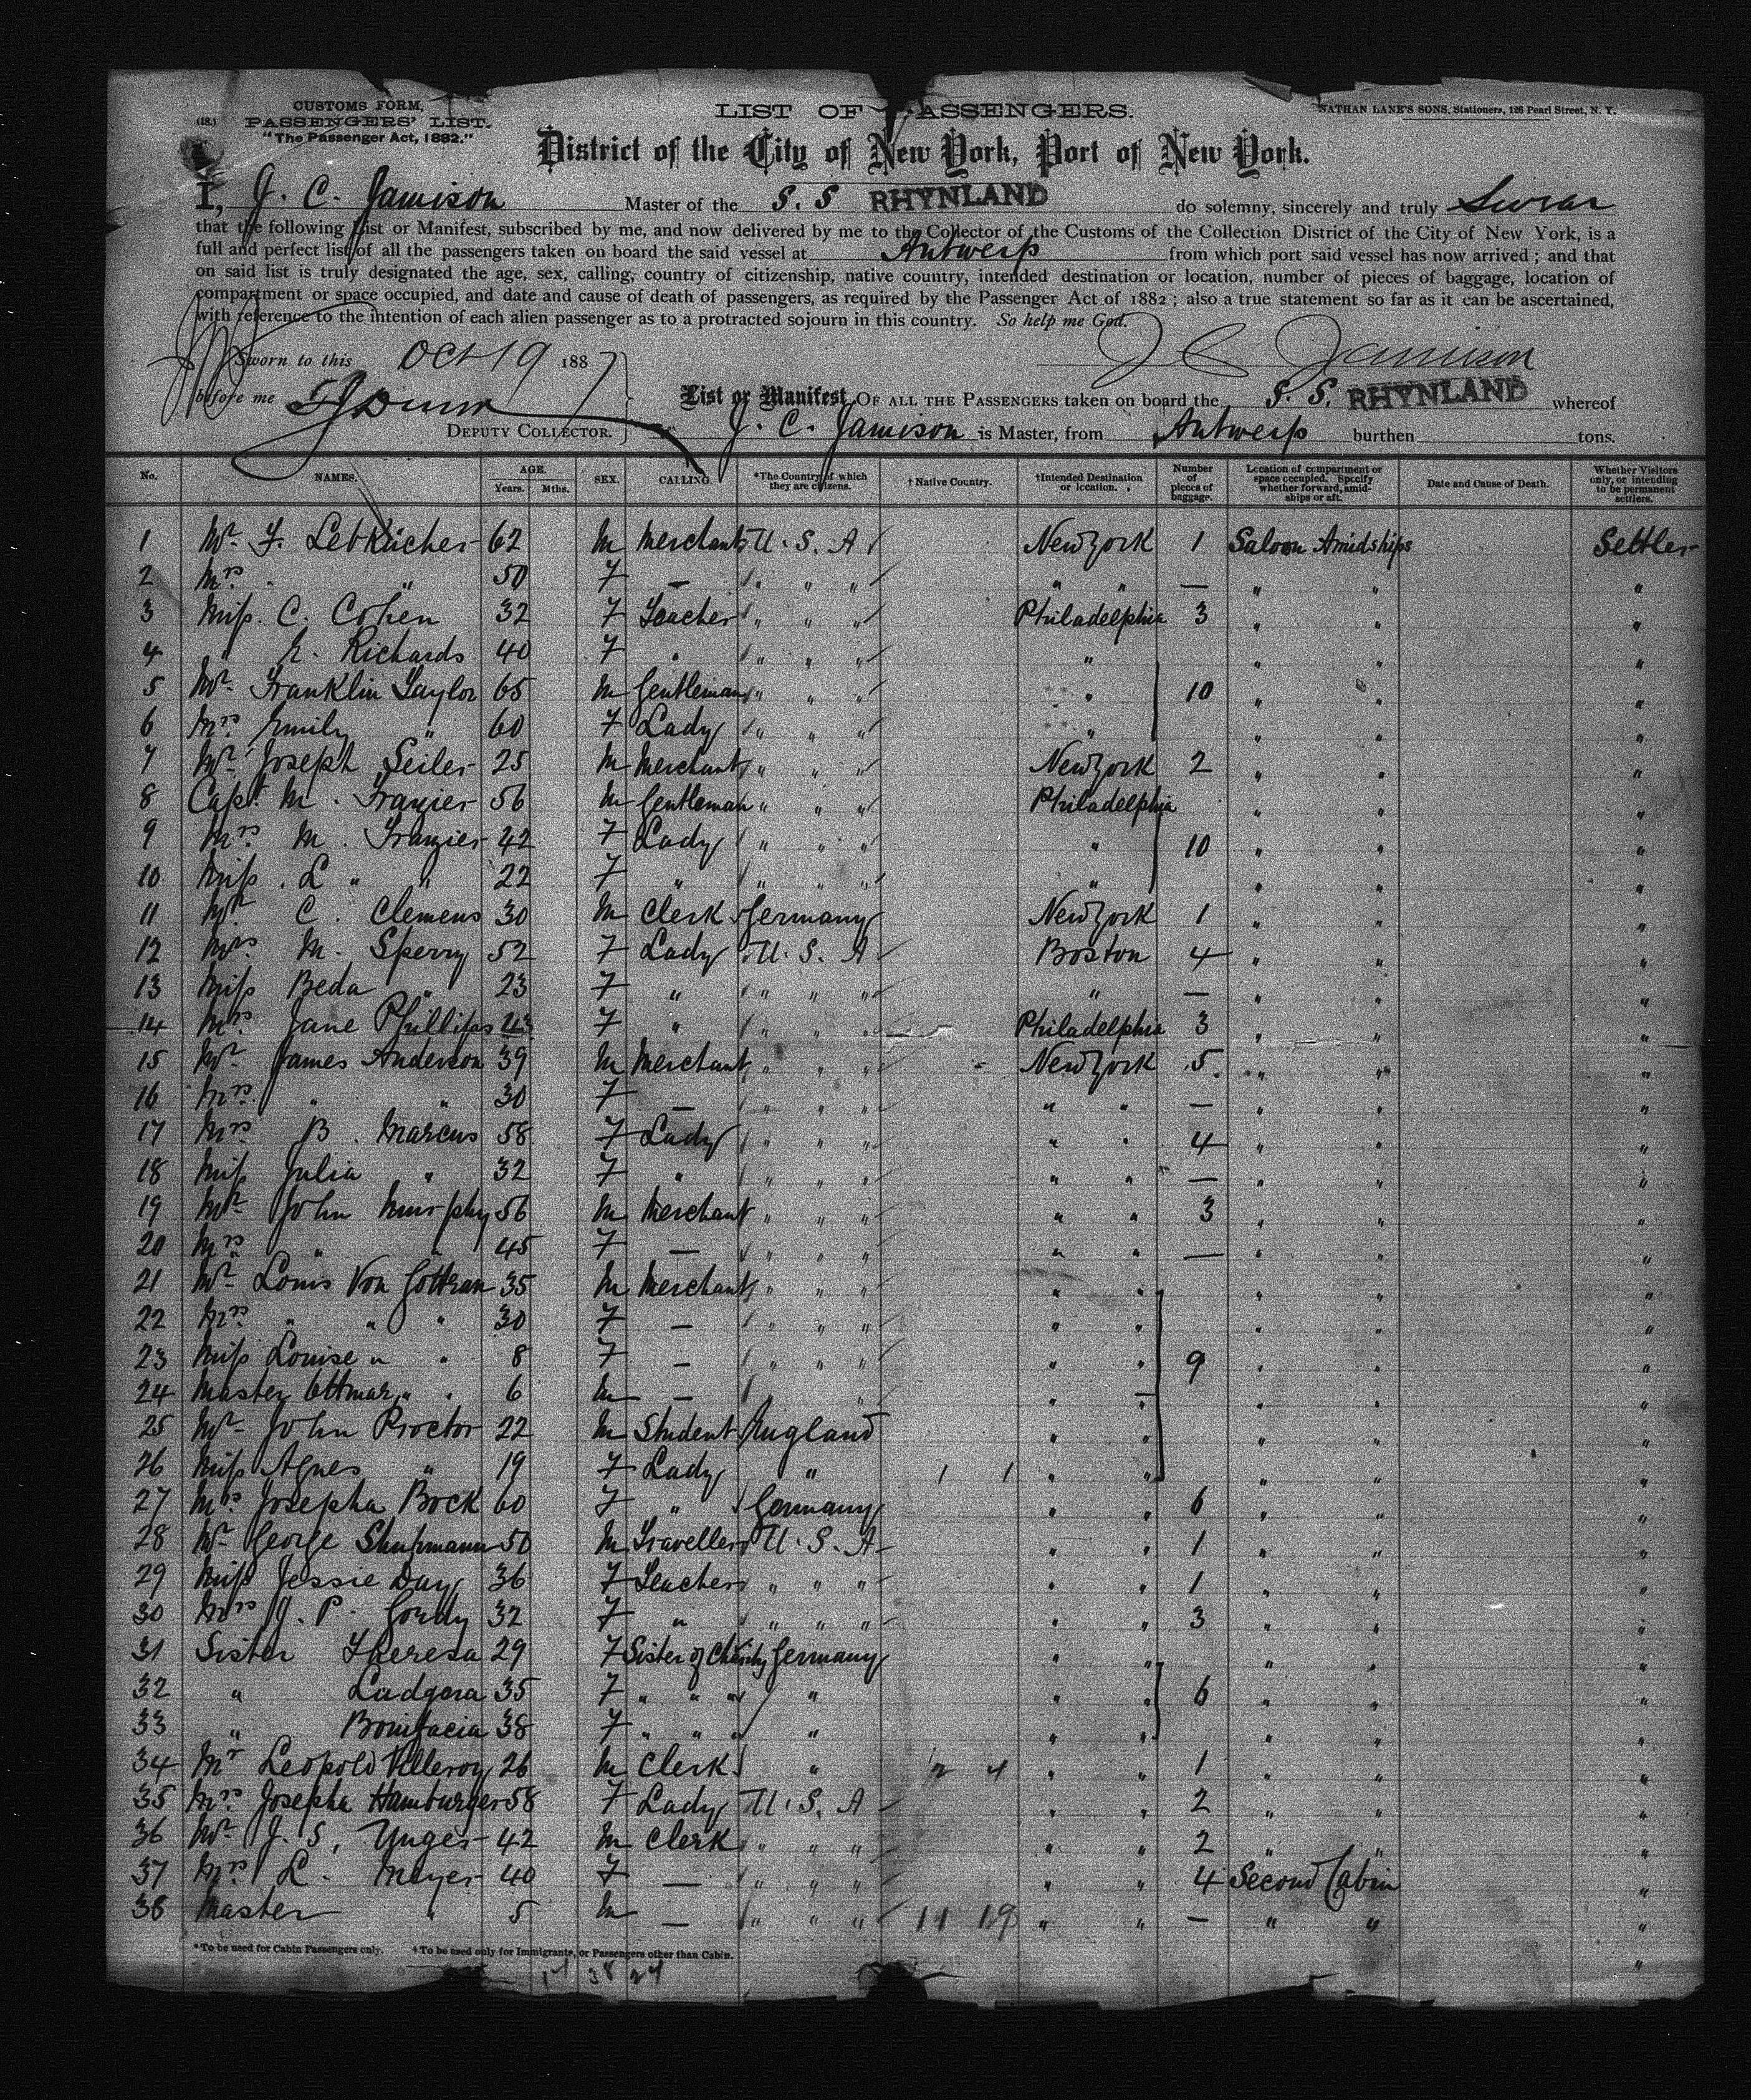 CUSTOMS FORM,
(18.) PASSENGERS' LIST.
"The Passenger Act, 1882."
LIST OF PASSENGERS.
NATHAN LANE'S SONS, Stationers, 126 Pearl Street, N. Y.
District of the City of New York, Port of New York.
I, J. C. Jamison Master of the S. S RHYNLAND do solemny, sincerely and truly Swear
that the following List or Manifest, subscribed by me, and now delivered by me to the Collector of the Customs of the Collection District of the City of New York, is a
full and perfect list of all the passengers taken on board the said vessel at Antwerp from which port said vessel has now arrived ; and that
on said list is truly designated the age, sex, calling, country of citizenship, native country, intended destination or location, number of pieces of baggage, location of
compartment or space occupied, and date and cause of death of passengers, as required by the Passenger Act of 1882 ; also a true statement so far as it can be ascertained,
with reference to the intention of each alien passenger as to a protracted sojourn in this country. So help me God.
Sworn to this Oct 19 1887
J C Jamison
before me
DEPUTY COLLECTOR.
List or Manifest OF ALL THE PASSENGERS taken on board the S. S. RHYNLAND whereof
J. C. Jamison is Master, from Antwerp burthen tons.
No. NAMES. AGE. Years. Mths. SEX. CALLING. *The Country of which they are citizens. † Native Country. †Intended Destination or location. Number of pieces of baggage. Location of compartment or space occupied. Specify whether forward, amidships or aft. Date and Cause of Death. Whether Visitors only, or intending to be permanent settlers.
1 Mr. F. Lebkücher 62 M Merchant U. S. A New York 1 Saloon Amidships Settler
2 Mrs. " 50 F — " " " " " — " " "
3 Miss. C. Cohen 32 F Teacher " " " Philadelphia 3 " " "
4 " E. Richards 40 F " " " " " " " "
5 Mr. Franklin Taylor 65 M Gentleman " " " " 10 " " "
6 Mrs Emily " 60 F Lady " " " " " " "
7 Mr. Joseph Seiler 25 M Merchant " " " New York 2 " " "
8 Capt. M. Frazier 56 M Gentleman " " " Philadelphia " " "
9 Mrs M. Frazier 42 F Lady " " " " 10 " " "
10 Miss. L " " 22 F " " " " " " " "
11 Mr C. Clemens 30 M Clerk Germany New York 1 " " "
12 Mrs. M. Sperry 52 F Lady U. S. A Boston 4 " " "
13 Miss Beda " 23 F " " " " " — " " "
14 Mrs. Jane Phillips 43 F " " " " Philadelphia 3 " " "
15 Mr. James Anderson 39 M Merchant " " " New York 5 " " "
16 Mrs. " " 30 F — " " " " " — " " "
17 Mrs B. Marcus 58 F Lady " " " " " 4 " " "
18 Miss Julia " 32 F " " " " " " — " " "
19 Mr. John Murphy 56 M Merchant " " " " " 3 " " "
20 Mrs " " 45 F — " " " " " — " " "
21 Mr. Louis Von Gottran 35 M Merchant " " " " " " " "
22 Mrs. " " " 30 F — " " " " " " " "
23 Miss Louise " " 8 F — " " " " " 9 " " "
24 Master Ottmar " " 6 M — " " " " " " "
25 Mr. John Proctor 22 M Student England " " " " "
26 Miss Agnes " 19 F Lady " 1 1 " " " " "
27 Mrs. Josepha Bock 60 F " Germany " " 6 " " "
28 Mr. George 50 M Traveller U. S. A " " 1 " " "
29 Miss Jessie Day 36 F Teacher " " " " " 1 " " "
30 Mrs J. P. 32 F " " " " " " 3 " " "
31 Sister Theresa 29 F Sister of Charity Germany " " " " "
32 " Ladgora 35 F " " " " " " 6 " " "
33 " Bonifacia 38 F " " " " " " " " "
34 Mr Leopold Villeroy 26 M Clerk " 2 4 " " 1 " " "
35 Mrs. Josepha Hamburger 58 F Lady U. S. A " " 2 " " "
36 Mr. J. S. Unger 42 M Clerk " " " " " 2 " " "
37 Mrs L. Meyer 40 F — " " " " " 4 Second Cabin "
38 Master " 5 M — " " " 11 19 " " — " " "
*To be used for Cabin Passengers only. †To be used only for Immigrants, or Passengers other than Cabin. "
17 38 24